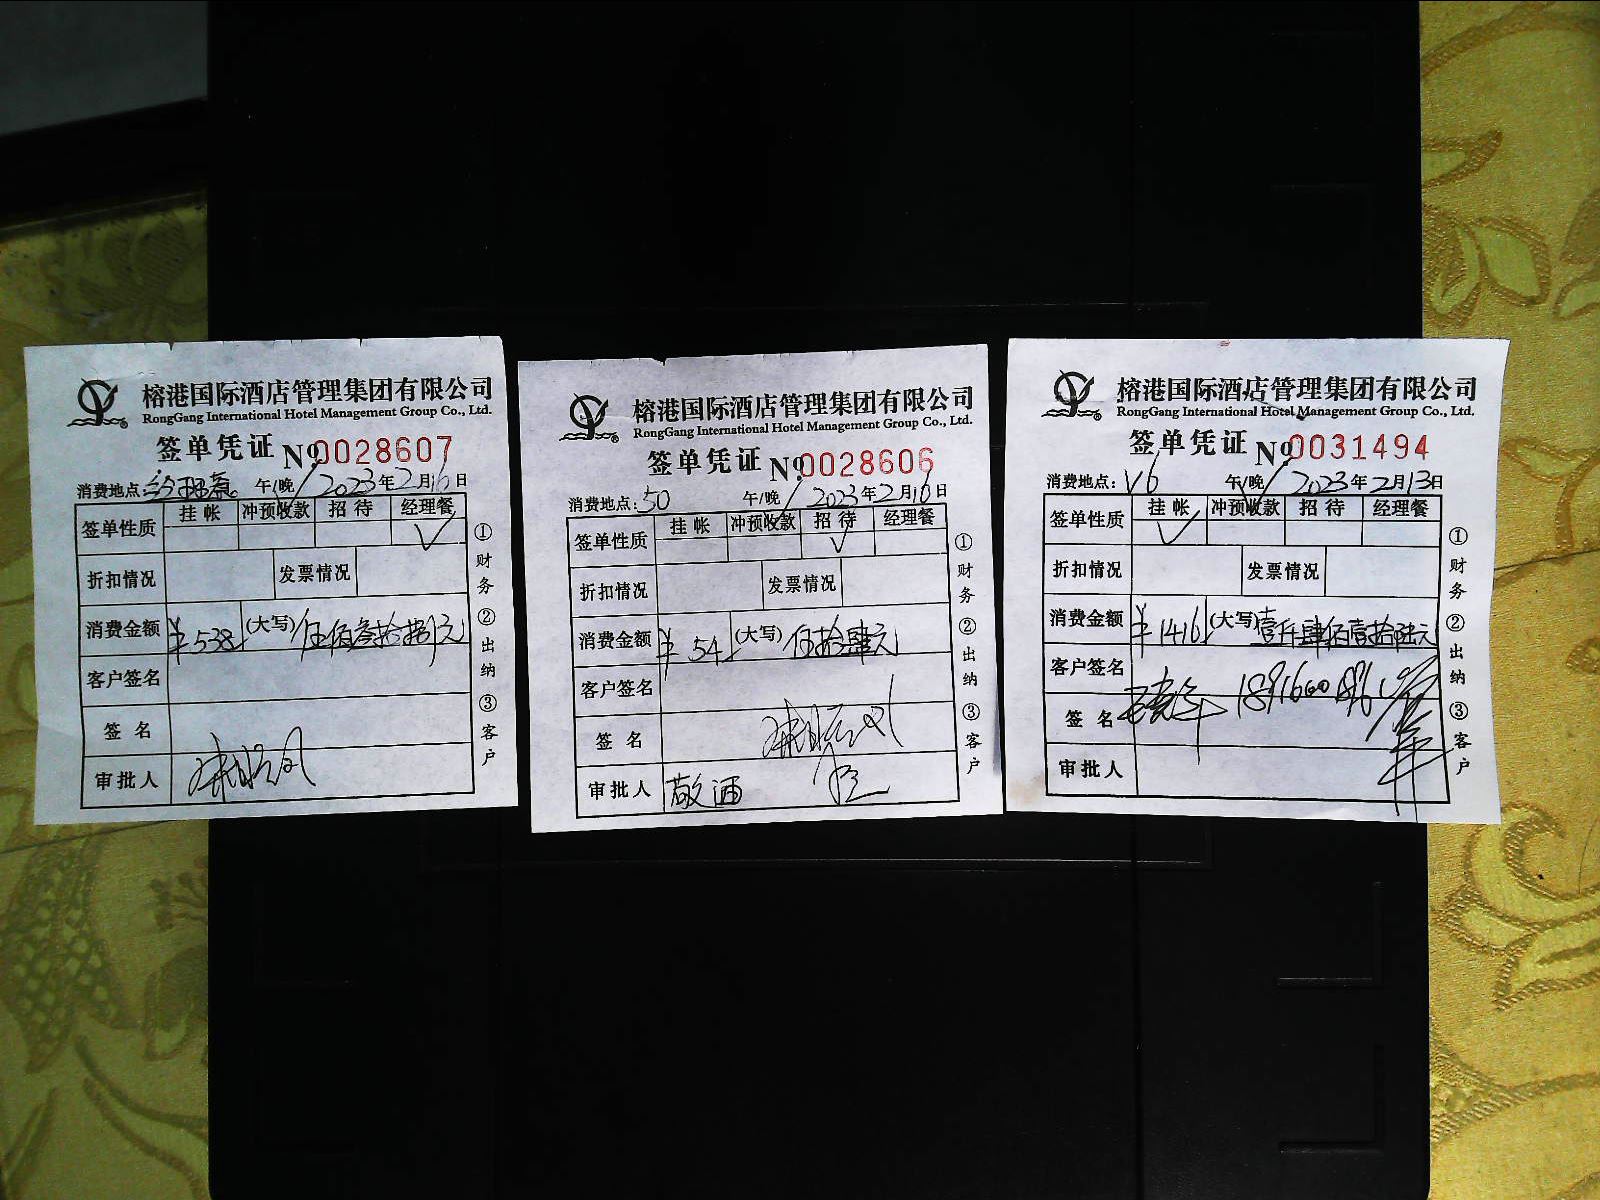 榕港国际酒店管理集团有限公司
RongGang International Hotel Management Group Co., Ltd.
签单凭证 No 0028607
消费地点: 午/晚 2023年2月16日
签单性质 挂帐 冲预收款 招待 经理餐
√
折扣情况 发票情况
消费金额 ¥538 (大写) 伍佰叁拾捌元
客户签名
签名
审批人
①财务 ②出纳 ③客户
榕港国际酒店管理集团有限公司
RongGang International Hotel Management Group Co., Ltd.
签单凭证 No 0028606
消费地点:50 午/晚 2023年2月16日
签单性质 挂帐 冲预收款 招待 经理餐
√
折扣情况 发票情况
消费金额 ¥54 (大写) 伍拾肆元
客户签名
签名
审批人 敬酒
①财务 ②出纳 ③客户
榕港国际酒店管理集团有限公司
RongGang International Hotel Management Group Co., Ltd.
签单凭证 No 0031494
消费地点:V6 午/晚 2023年2月13日
签单性质 挂帐 冲预收款 招待 经理餐
√
折扣情况 发票情况
消费金额 ¥1416 (大写) 壹仟肆佰壹拾陆元
客户签名
签名
审批人
①财务 ②出纳 ③客户